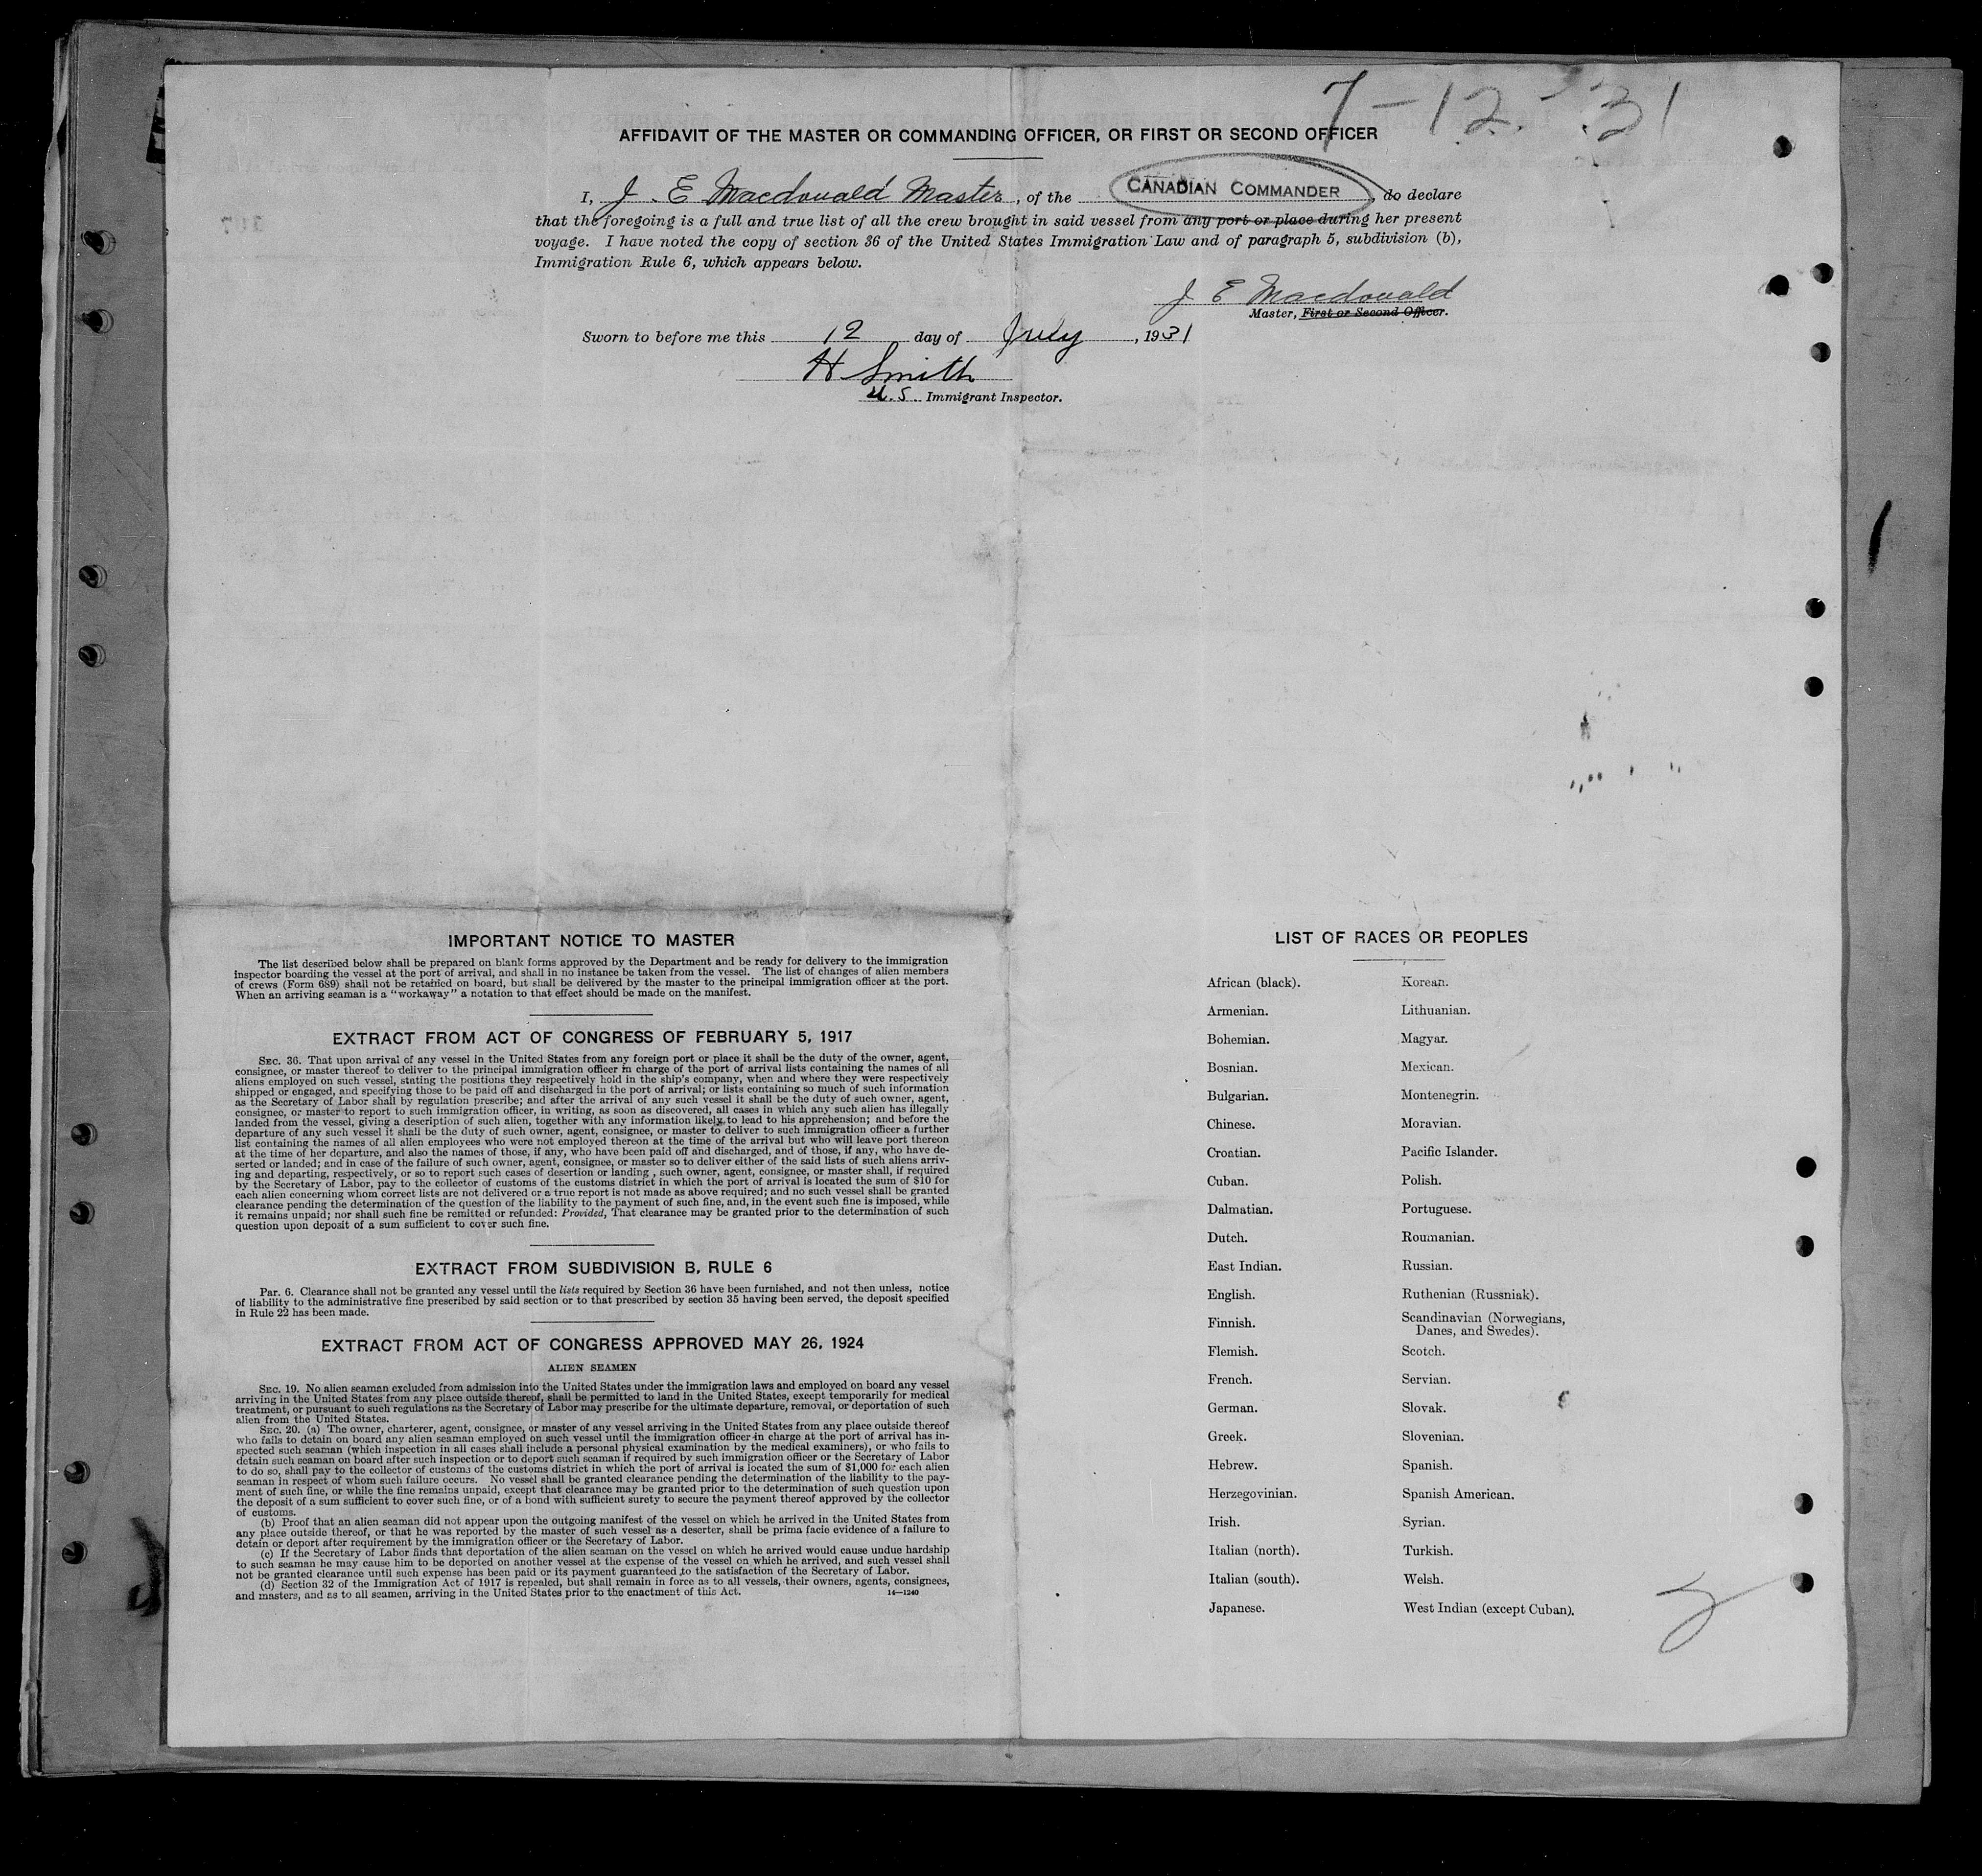 7-12-31
AFFIDAVIT OF THE MASTER OR COMMANDING OFFICER, OR FIRST OR SECOND OFFICER
I, J. E Macdonald Master, of the CANADIAN COMMANDER, do declare
that the foregoing is a full and true list of all the crew brought in said vessel from any port or place during her present
voyage. I have noted the copy of section 36 of the United States Immigration Law and of paragraph 5, subdivision (b),
Immigration Rule 6, which appears below.
J E Macdonald
Master, First or Second Officer.
Sworn to before me this 12 day of July, 1931
H Smith
U.S. Immigrant Inspector.
IMPORTANT NOTICE TO MASTER
The list described below shall be prepared on blank forms approved by the Department and be ready for delivery to the immigration
inspector boarding the vessel at the port of arrival, and shall in no instance be taken from the vessel. The list of changes of alien members
of crews (Form 689) shall not be retained on board, but shall be delivered by the master to the principal immigration officer at the port.
When an arriving seaman is a "workaway" a notation to that effect should be made on the manifest.
EXTRACT FROM ACT OF CONGRESS OF FEBRUARY 5, 1917
SEC. 36. That upon arrival of any vessel in the United States from any foreign port or place it shall be the duty of the owner, agent,
consignee, or master thereof to deliver to the principal immigration officer in charge of the port of arrival lists containing the names of all
aliens employed on such vessel, stating the positions they respectively hold in the ship's company, when and where they were respectively
shipped or engaged, and specifying those to be paid off and discharged in the port of arrival; or lists containing so much of such information
as the Secretary of Labor shall by regulation prescribe; and after the arrival of any such vessel it shall be the duty of such owner, agent,
consignee, or master to report to such immigration officer, in writing, as soon as discovered, all cases in which any such alien has illegally
landed from the vessel, giving a description of such alien, together with any information likely to lead to his apprehension; and before the
departure of any such vessel it shall be the duty of such owner, agent, consignee, or master to deliver to such immigration officer a further
list containing the names of all alien employees who were not employed thereon at the time of the arrival but who will leave port thereon
at the time of her departure, and also the names of those, if any, who have been paid off and discharged, and of those, if any, who have de-
serted or landed; and in case of the failure of such owner, agent, consignee, or master so to deliver either of the said lists of such aliens arriv-
ing and departing, respectively, or so to report such cases of desertion or landing , such owner, agent, consignee, or master shall, if required
by the Secretary of Labor, pay to the collector of customs of the customs district in which the port of arrival is located the sum of $10 for
each alien concerning whom correct lists are not delivered or a true report is not made as above required; and no such vessel shall be granted
clearance pending the determination of the question of the liability to the payment of such fine, and, in the event such fine is imposed, while
it remains unpaid; nor shall such fine be remitted or refunded: Provided, That clearance may be granted prior to the determination of such
question upon deposit of a sum sufficient to cover such fine.
EXTRACT FROM SUBDIVISION B, RULE 6
Par. 6. Clearance shall not be granted any vessel until the lists required by Section 36 have been furnished, and not then unless, notice
of liability to the administrative fine prescribed by said section or to that prescribed by section 35 having been served, the deposit specified
in Rule 22 has been made.
EXTRACT FROM ACT OF CONGRESS APPROVED MAY 26, 1924
ALIEN SEAMEN
SEC. 19. No alien seaman excluded from admission into the United States under the immigration laws and employed on board any vessel
arriving in the United States from any place outside thereof, shall be permitted to land in the United States, except temporarily for medical
treatment, or pursuant to such regulations as the Secretary of Labor may prescribe for the ultimate departure, removal, or deportation of such
alien from the United States.
SEC. 20. (a) The owner, charterer, agent, consignee, or master of any vessel arriving in the United States from any place outside thereof
who fails to detain on board any alien seaman employed on such vessel until the immigration officer in charge at the port of arrival has in-
spected such seaman (which inspection in all cases shall include a personal physical examination by the medical examiners), or who fails to
detain such seaman on board after such inspection or to deport such seaman if required by such immigration officer or the Secretary of Labor
to do so, shall pay to the collector of customs of the customs district in which the port of arrival is located the sum of $1,000 for each alien
seaman in respect of whom such failure occurs. No vessel shall be granted clearance pending the determination of the liability to the pay-
ment of such fine, or while the fine remains unpaid, except that clearance may be granted prior to the determination of such question upon
the deposit of a sum sufficient to cover such fine, or of a bond with sufficient surety to secure the payment thereof approved by the collector
of customs.
(b) Proof that an alien seaman did not appear upon the outgoing manifest of the vessel on which he arrived in the United States from
any place outside thereof, or that he was reported by the master of such vessel as a deserter, shall be prima facie evidence of a failure to
detain or deport after requirement by the immigration officer or the Secretary of Labor.
(c) If the Secretary of Labor finds that deportation of the alien seaman on the vessel on which he arrived would cause undue hardship
to such seaman he may cause him to be deported on another vessel at the expense of the vessel on which he arrived, and such vessel shall
not be granted clearance until such expense has been paid or its payment guaranteed to the satisfaction of the Secretary of Labor.
(d) Section 32 of the Immigration Act of 1917 is repealed, but shall remain in force as to all vessels, their owners, agents, consignees,
and masters, and as to all seamen, arriving in the United States prior to the enactment of this Act. 14—1240
LIST OF RACES OR PEOPLES
African (black). Korean.
Armenian. Lithuanian.
Bohemian. Magyar.
Bosnian. Mexican.
Bulgarian. Montenegrin.
Chinese. Moravian.
Croatian. Pacific Islander.
Cuban. Polish.
Dalmatian. Portuguese.
Dutch. Roumanian.
East Indian. Russian.
English. Ruthenian (Russniak).
Finnish. Scandinavian (Norwegians,
Danes, and Swedes).
Flemish. Scotch.
French. Servian.
German. Slovak.
Greek. Slovenian.
Hebrew. Spanish.
Herzegovinian. Spanish American.
Irish. Syrian.
Italian (north). Turkish.
Italian (south). Welsh.
Japanese. West Indian (except Cuban).